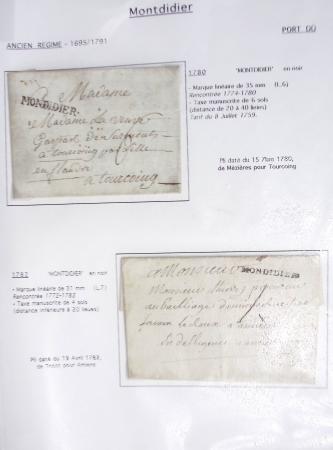 Montdidier
PORT DÛ
ANCIEN REGIME - 1695/1791
1780 'MONTDIDIER' en noir
- Marque linéaire de 35 mm (L.6)
Rencontrée 1774-1780
- Taxe manuscrite de 6 sols
(distance de 20 à 40 lieues)
Tarif du 8 Juillet 1759.
Pli daté du 15 Mars 1780,
de Mézières pour Tourcoing
A Madame
MONTDIDIER.
Madame La veuve
a tourcoing par Lille
en flandre
a tourcoing
1783 'MONTDIDIER' en noir
- Marque linéaire de 31 mm (L.7)
Rencontrée 1772-1783
- Taxe manuscrite de 4 sols
(distance inférieure à 20 lieues)
Pli daté du 19 Avril 1783,
pour Amiens
a Monsieur
MONDIDIER
Monsieur
au bailliage